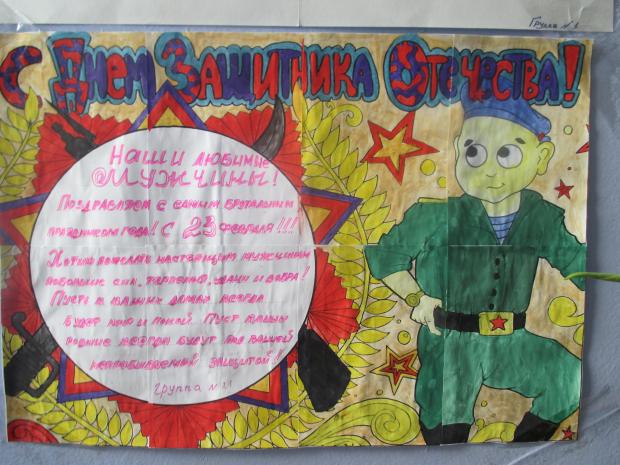 Группа №1
С Днем Защитника Отечества!
Наши любимые
Мужчины!
Поздравляем с самым брутальным
праздником года! С 23 февраля!!!!
Хотим пожелать настоящим мужчинам
побольше сил, терпения, удачи и добра!
Пусть в ваших домах всегда
будет мир и покой. Пуст ваши
родные всегда будут под вашей
непробиваемой защитой!!
группа №11